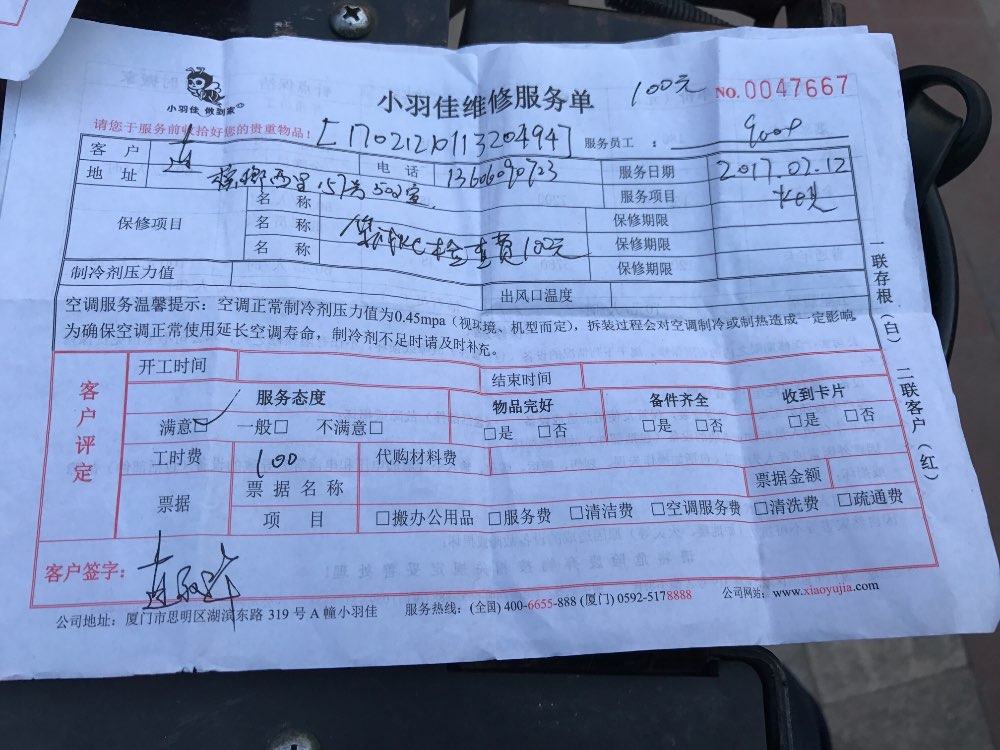 小羽佳 做到家
小羽佳维修服务单 100元 NO.0047667
请您于服务前收拾好您的贵重物品! [1702121011320494] 服务员工: 9004
客户 连 电话 13606090723 服务日期 2017.02.12
地址 槟榔西里157号502室 服务项目
保修项目 名称 保修期限
名称 检查费100元 保修期限
名称 保修期限
制冷剂压力值 出风口温度
空调服务温馨提示:空调正常制冷剂压力值为0.45mpa(视环境、机型而定),拆装过程会对空调制冷或制热造成一定影响,
为确保空调正常使用延长空调寿命,制冷剂不足时请及时补充。
客户评定
开工时间 结束时间
服务态度 物品完好 备件齐全 收到卡片
满意□ 一般□ 不满意□ □是 □否 □是 □否 □是 □否
工时费 100 代购材料费
票据 票据名称 票据金额
项目 □搬办公用品 □服务费 □清洁费 □空调服务费 □清洗费 □疏通费
客户签字: 连
公司地址:厦门市思明区湖滨东路 319 号 A 幢小羽佳 服务热线:(全国) 400-6655-888 (厦门) 0592-5178888 公司网站:www.xiaoyujia.com
一联存根(白) 二联客户(红)